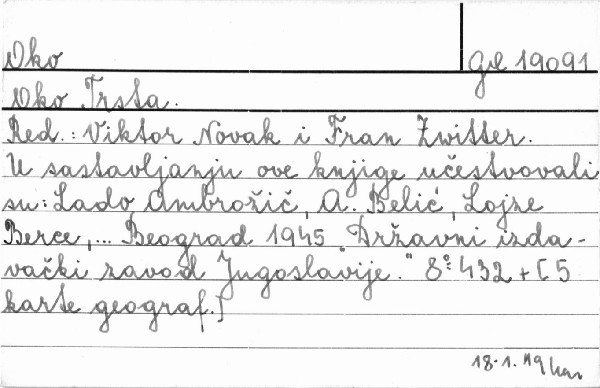 Oko
Gл 19091
Oko Trsta.
Red.: Viktor Novak i Fran Zwitter.
U sastavljanju ove knjige učestvovali
su: Lado Ambrožič, A. Belić, Lojze
Berce,... Beograd 1945 "Državni izda-
vački zavod Jugoslavije." 8º 432 + [5
karte geograf.]
18.1.